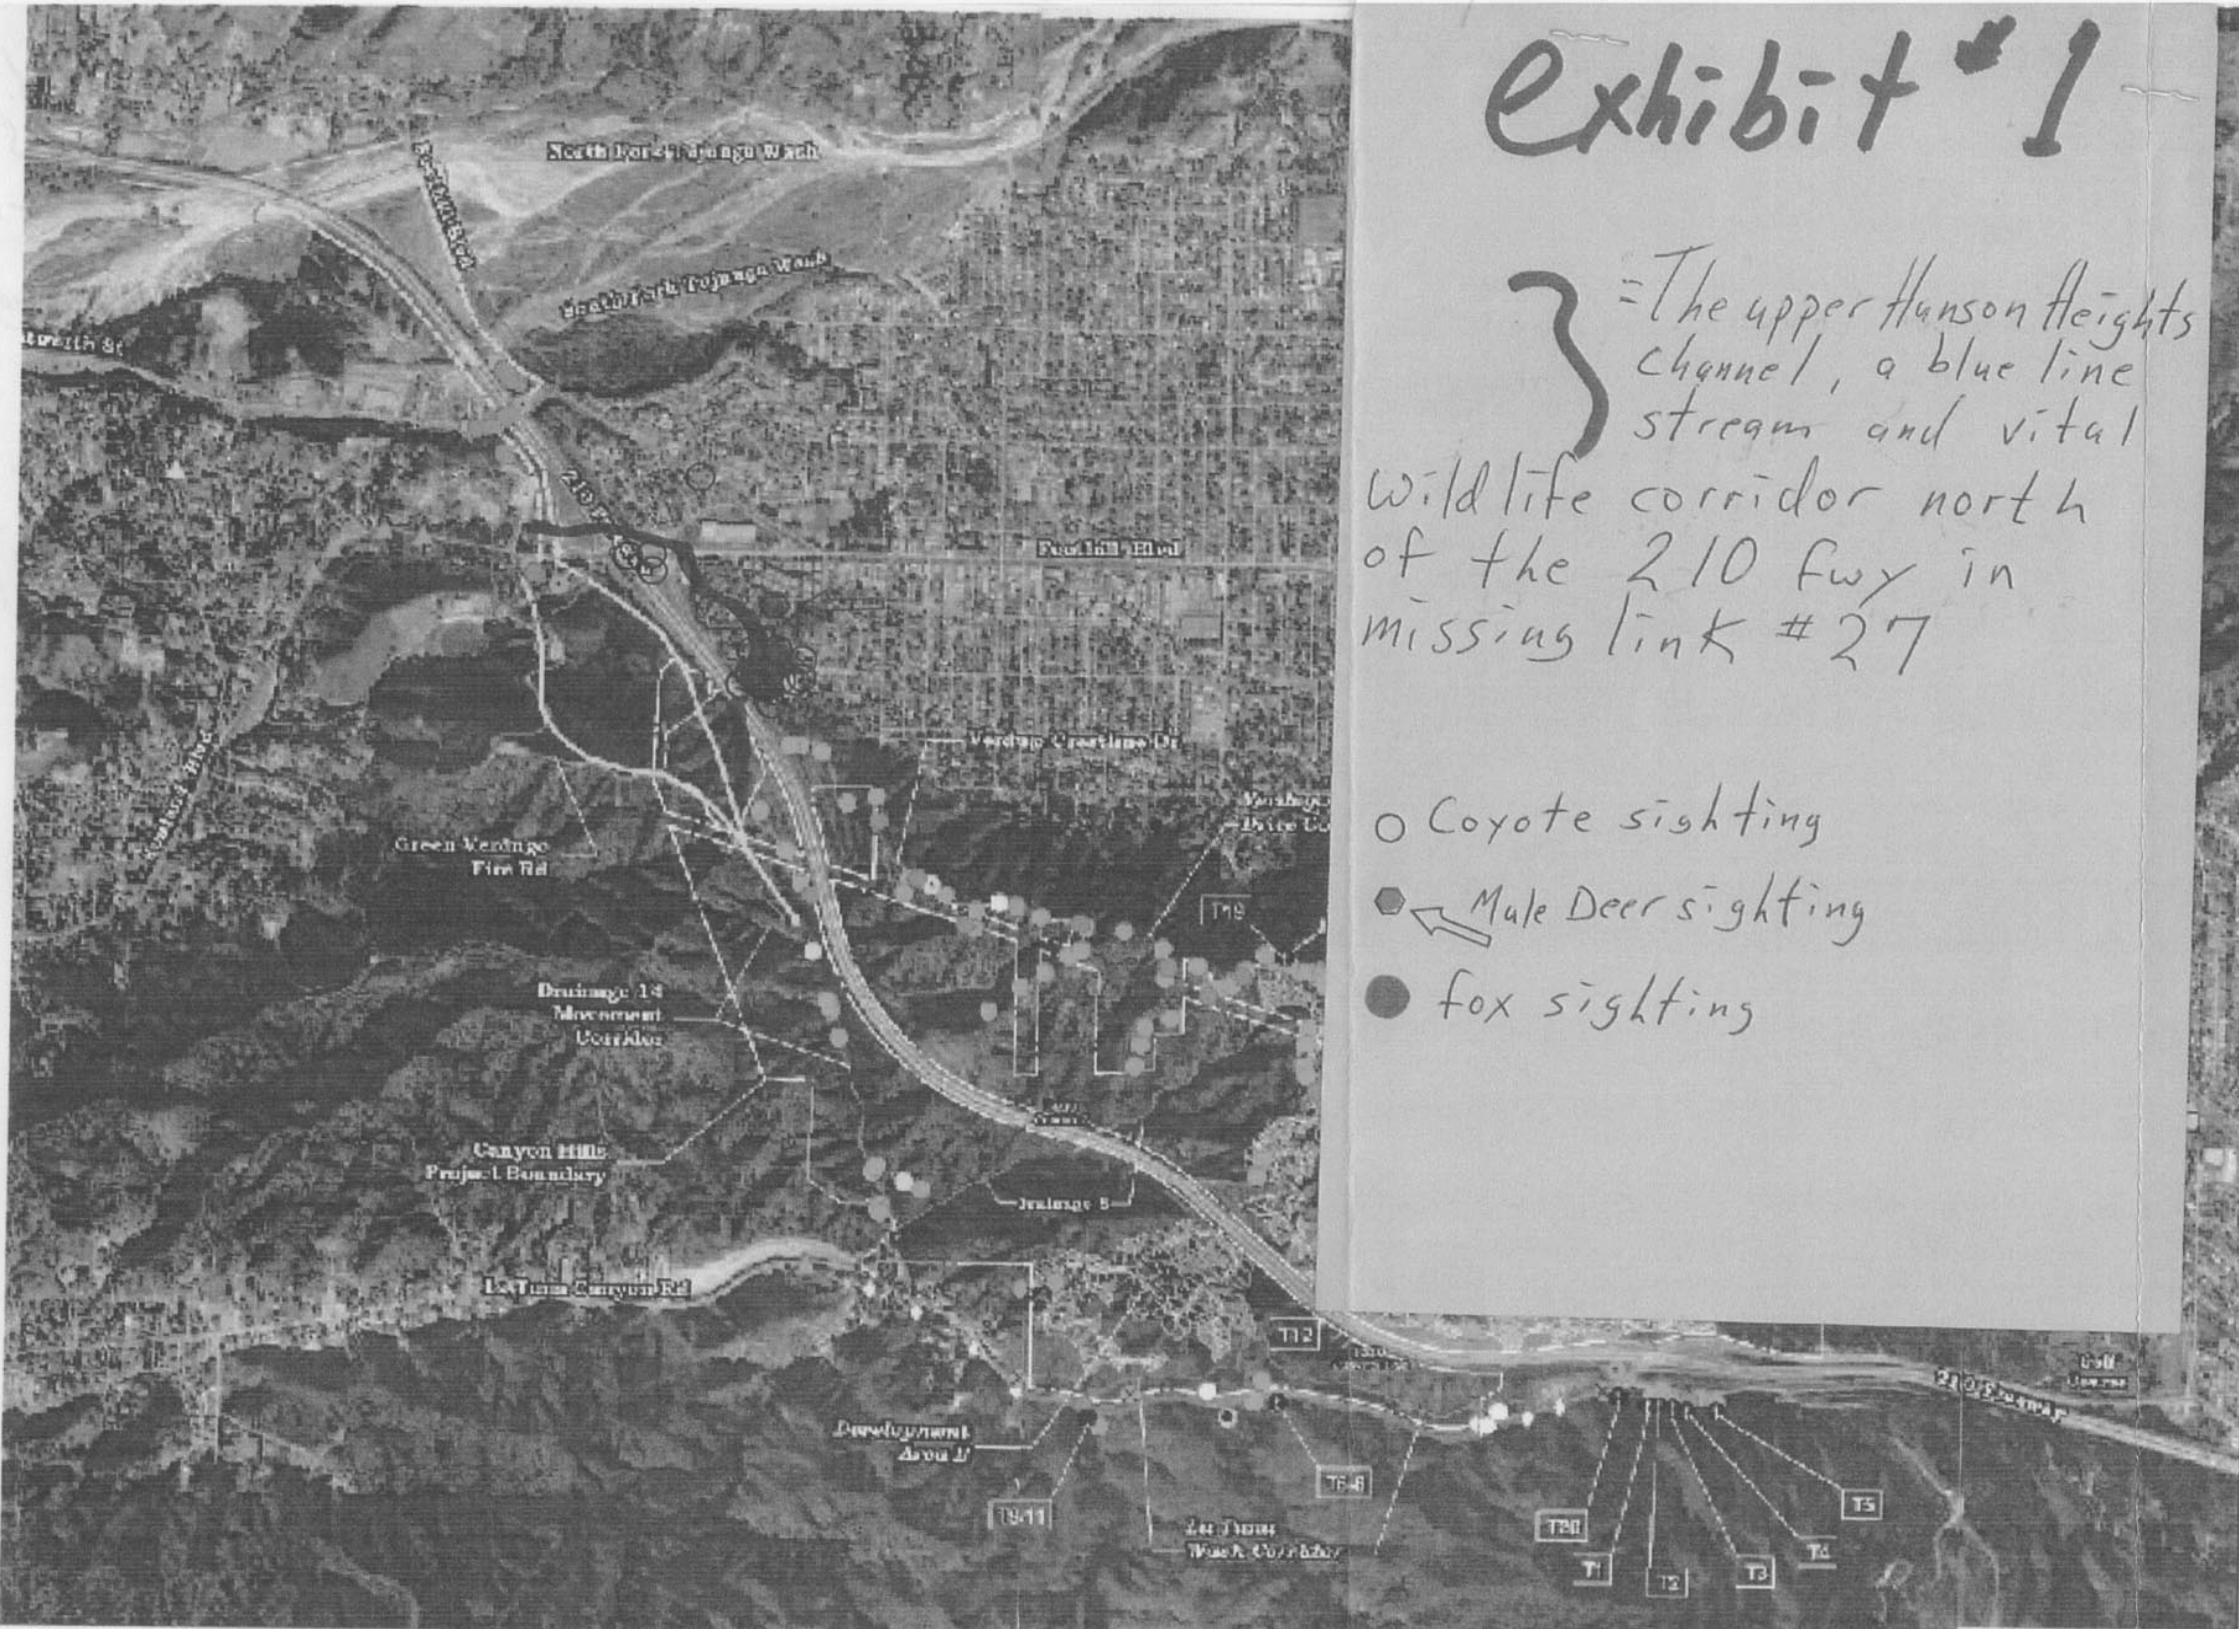 exhibit #1
= The upper Hanson Heights
Channel, a blue line
stream and vital
Wildlife corridor north
of the 210 fwy in
missing link #27
Coyote sighting
Mule Deer sighting
fox sighting
North Fork Tujunga Wash
South Fork Tujunga Wash
210
Foothill Blvd
Verdugo Crestline Dr
Green Verdugo
Fire Rd
T19
Drainage 14
Movement
Corridor
Canyon Hills
Project Boundary
Drainage 5
La Tuna Canyon Rd
T12
Golf
Course
210 Freeway
Development
Area B
T9-11
T6-8
La Tuna
Wash Corridor
T20
T1
T2
T3
T4
T5